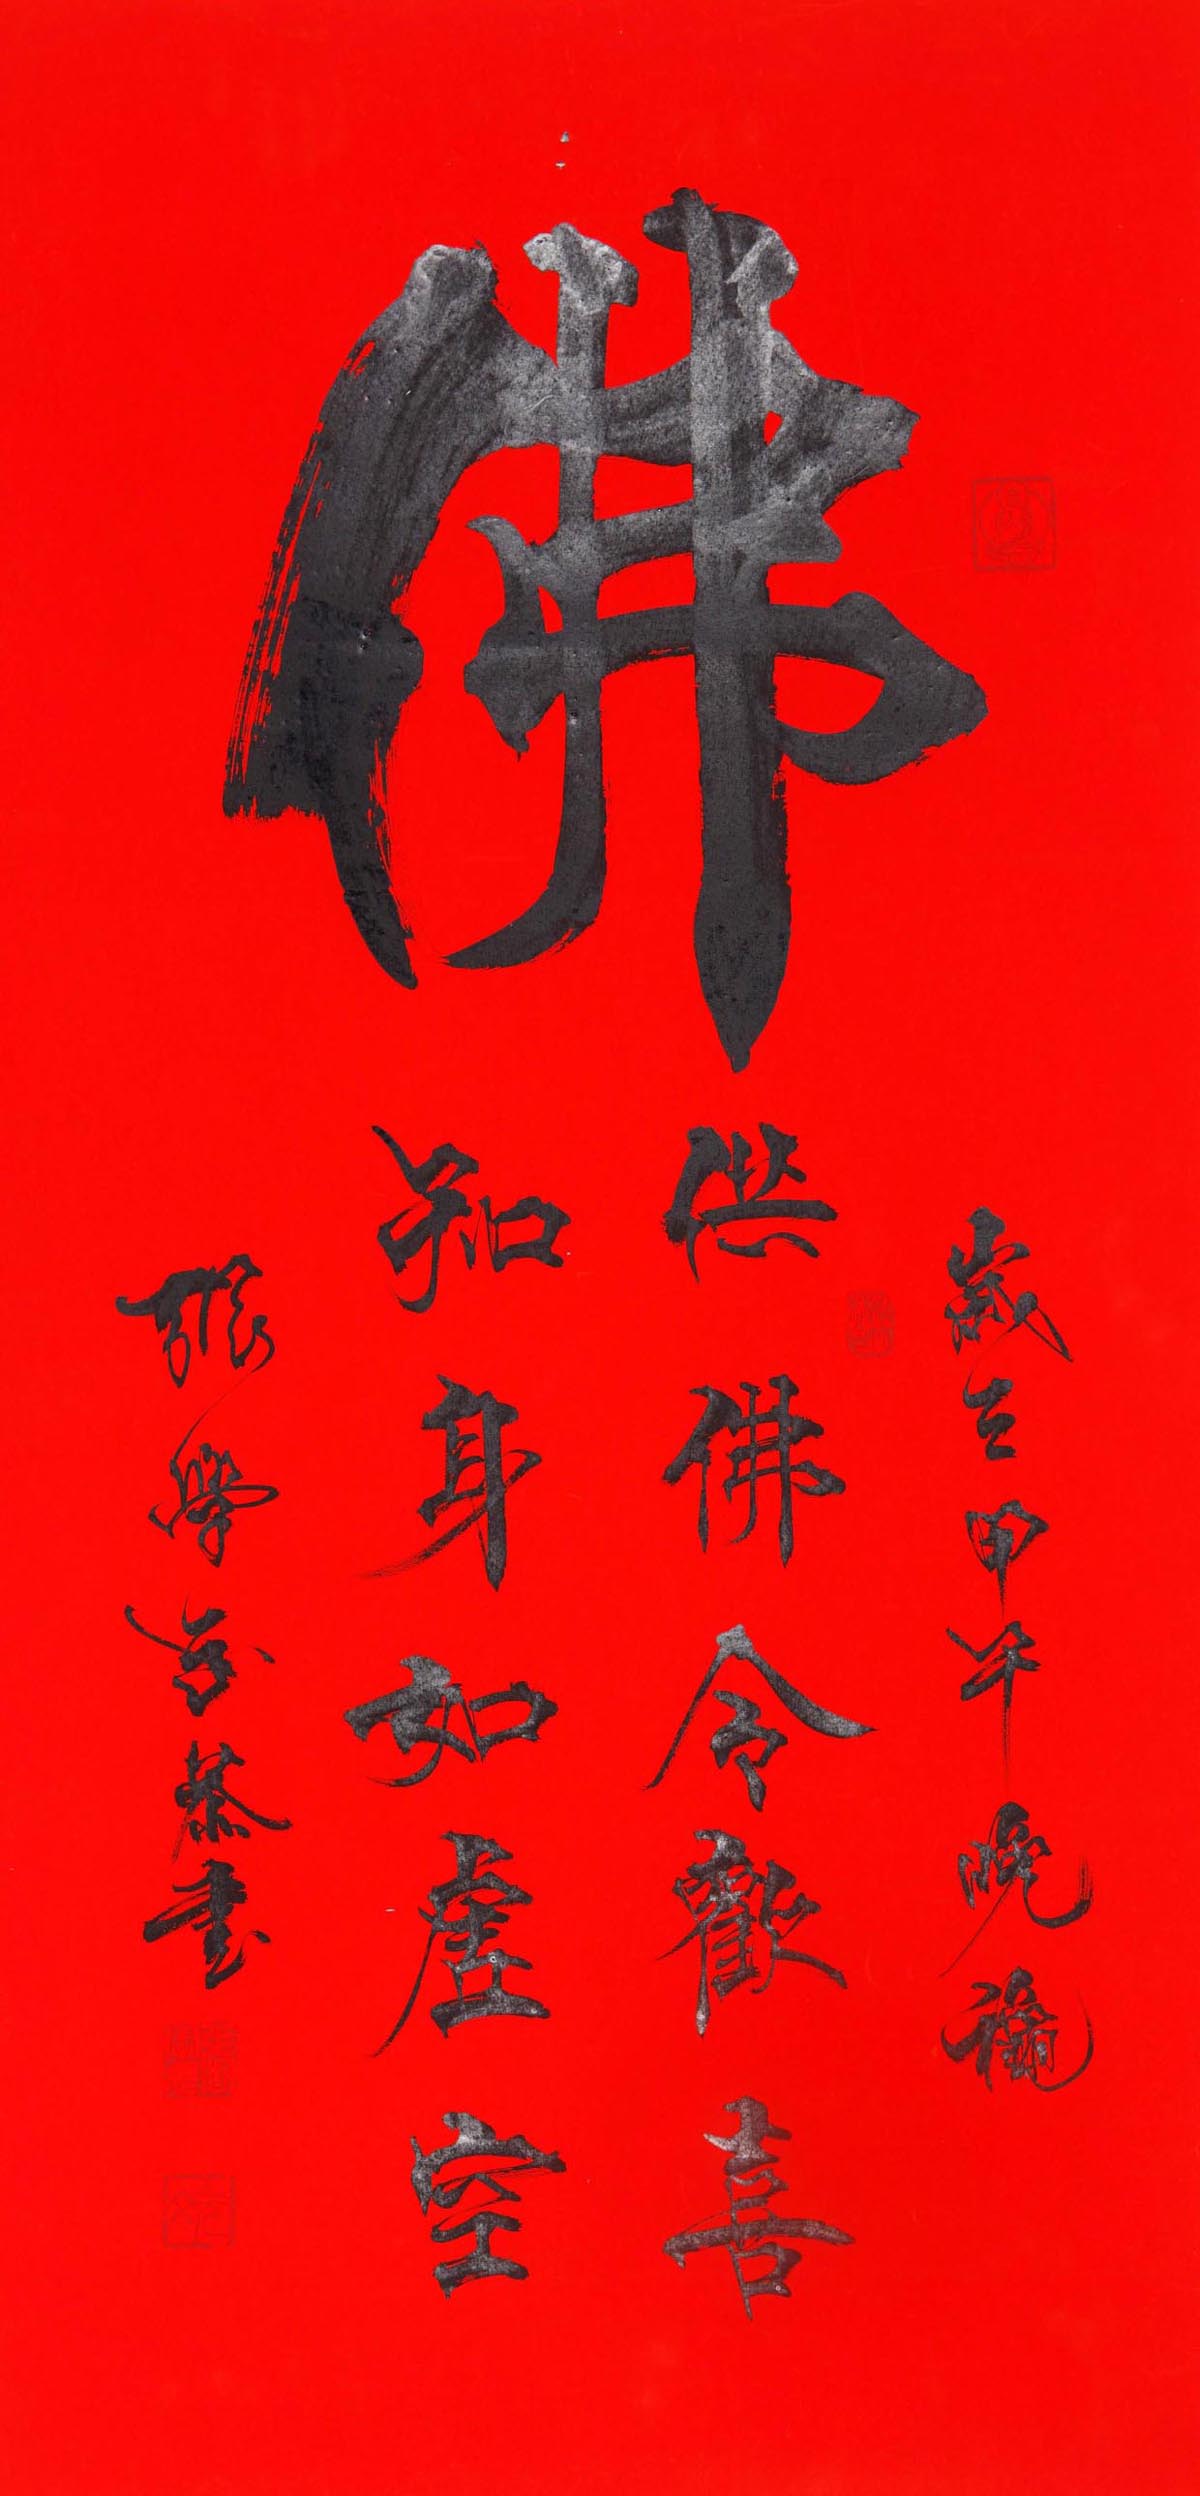 佛
歲在甲午晚龝
供佛令歡喜
知身如虛空
張學 恭書